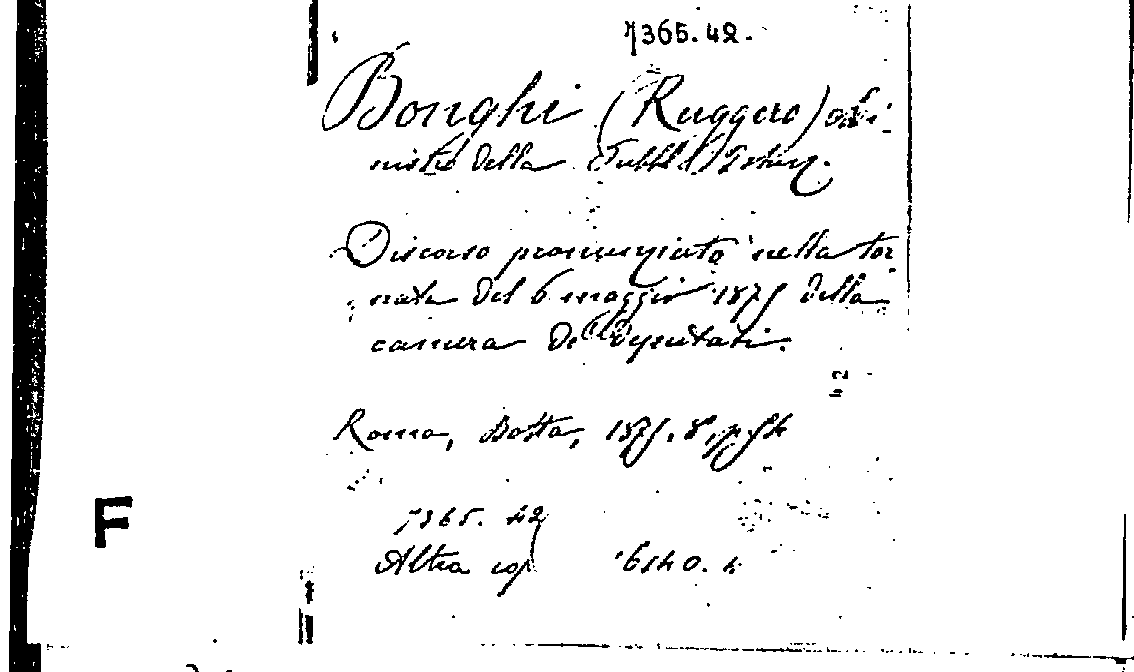 7365.42.
Bonghi (Ruggero) Mi-
nistro della Pubbl. Istruz.
Discorso pronunziato nella tor
nata del 6 maggio 1875 della
camera de' Deputati.
Roma, Botta, 1875. 8, p. 54
F
7365. 42
Altra cop 6140. 4